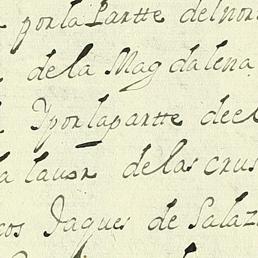 por la Partte del nor
de la Mag dalena
Y por la partte de el
la lauor de las crus
cos Jaques de Salaz